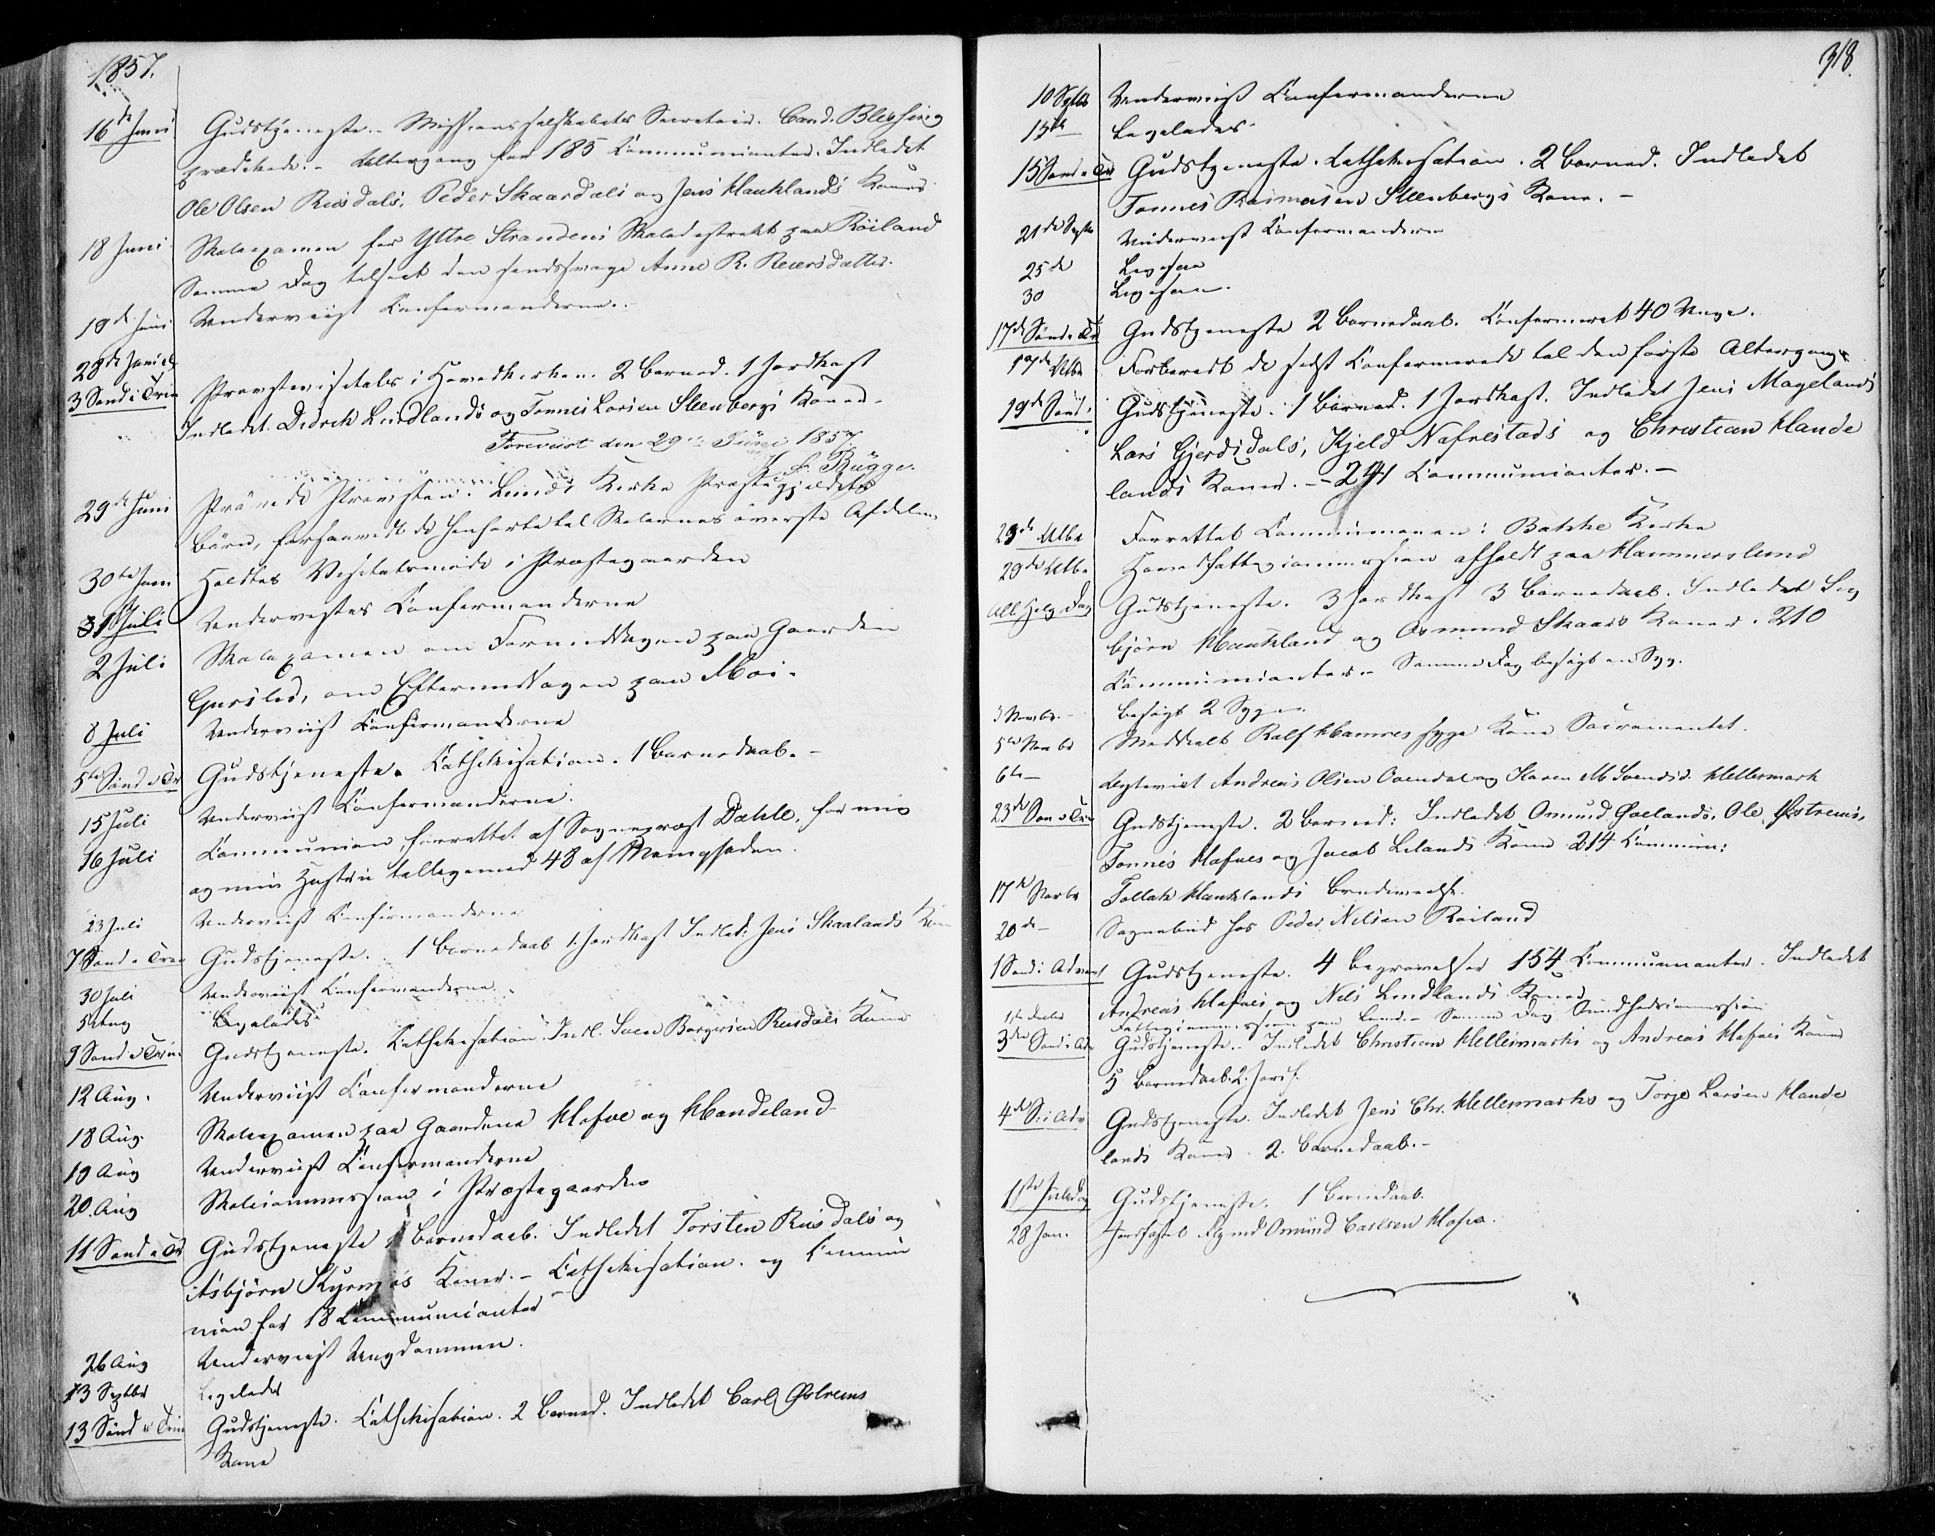 1857.
16de Juni Gudstjeneste. - Missionsselskabets Secretair. Cand. Blessing
prædikede. - Altergang for 185 Communicanter. Indledet
Ole Olsen Reisdals, Peder Skaardals og Jens Hauklands Koner
18 Juni Skoleexamen for Yttre Strandens Skoledistrikt paa Röiland
Samme Dag tilseet den sindssvage Anne R. Reiersdatter.
19de Juni Underviist Confirmanderne.
28de Juni
3 Sønd e Trin Provstevisitats i Hovedkirken. 2 Barned. 1 Jordkast
Indledet Didrik Lindlands og Tonnes Larsen Steenbergs Koner.
Foreviist den 29de Juni 1857.
Bugge.
29de Juni Prövede Provsten i Lunds Kirke Præstegjeldets
Börn, forsaavidt de henhørte til Skolernes överste Afdelin.
30te Juni Holdtes Visitatsmöde i Præstegaarden
1 Juli Undervistes Confirmanderne
2 Juli Skoleexamen om Formiddagen paa Gaarden
Gursled, om Eftermiddagen paa Moi.
8 Juli Underviist Confirmanderne
5te Sønd e Tr Gudstjeneste. Cathekisation. 1 Barnedaab. -
15 Juli Underviist Confirmanderne.
16 Juli Communion, forrettet af Sognepræst Dahle, for mig
og min Hustru tilligemed 48 af Menigheden.
23 Juli Underviist Confirmanderne
7 Sønd e Trin Gudstjeneste. 1 Barnedaab 1 Jordkast Indled: Jens Skaalands Kone
30 Juli Underviist Confirmanderne
5 Aug Ligeledes
9 Sønd e Trin Gudstjeneste. Cathekisation. Indl. Svend Börgesen Reisdals Kone
12 Aug. Underviist Confirmanderne
18 Aug. Skoleexamen paa Gaardene Hafve og Handeland
19 Aug Underviist Confirmanderne
20. Aug Skolecommission i Præstegaarden
11 Sønd e Tr Gudstjeneste Barnedaab. Indledet Torsten Reisdals og
Asbjörn Koner. - Cathekisation. og Commu
nion for 18 Communicanter
26 Aug Underviist Ungdommen.
3 Septbr Ligeledes
13 Sönd e Trin Gudstjeneste. Cathekisation. 2 Barned. Indledet Carl Østrems
Kone
318.
10 Septbr Underviist Confirmanderne
15de Ligeledes
15 Sønd e Tr Gudstjeneste. Cathekisation. 2 Barned. Indledet
Tonnes Rasmusen Steenbergs Kone. -
21de Septbr Underviist Confirmanderne
25de Ligesaa
30 Ligesaa.
17de Sønd e Tr Gudstjeneste 2 Barnedaab. Confirmeret 40 Unge.
Forberedt de sidst Confirmerede til den første Altergang
19de Sønd. Gudstjeneste. 1 Barned. 1 Jordkast. Indledet Jens Magelands
Lars Gjersdals, Kjeld Nafrestads og Christian Hande
lands Koner. - 241 Communicanter. -
23de Oktbr Forrettet Communionen i Bakke Kirke
29de Oktbr Fattigcommission afholdt paa Hammerslund
All. Helg. Dag Gudstjeneste. 3 Jordkast 3 Barnedaab. Indledet Sig
björn Haukland og Osmund Skaars Koner. 210
Communicanter. - Samme Dag besögt en Syg.
3 Novbr. - besögt 2 Syge.
5te Novbr Meddeelt Rolf Hamres syge Kone Sacramentet.
6te - Ægteviet Andreas Olsen Oendal og Karen M. Svendsd. Hellesmark
23de Søn e Trin Gudstjeneste. 2 Barned: Indledet Omund Gaelands, Ole Østrems,
Tonnes Hafves og Jacob Lelands Kone 214 Commun:
17de Novbr Tollak Hauklands
20de - Sognebud hos Peder Nilsen Röiland
1 Sønd i Advent Gudstjeneste. 4 Begravelser 154 Communicanter. Indledet
Andreas Hafves og Nels Lindlands Koner
Fattigcommission paa Lund. - Samme Dag Sundhedscommission
3de Sønd i Adv Gudstjeneste. - Indledet Christian Hellesmarks og Andreas Hafves Koner
5 Barnedaab. 2. Jordf.
4de S. i Adv Gudstjeneste. Indledet Jens Chr. Hellesmarks og Torje Larsen Hande
lands Koner. 2. Barnedaab. -
1ste Juledag Gudstjeneste. 1 Barnedaab.
28 Jan. Omund Carlsen Hafve.